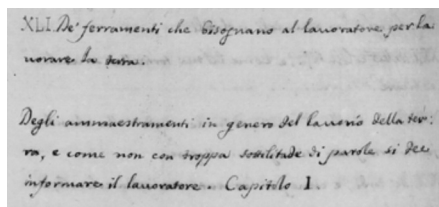 XLI. De' ferramenti che bisognano al lavoratore per la-
vorare la terra.
Degli ammaestramenti in genero del lavorio della ter-
ra, e come non con troppa sottilitade di parole si dee
informare il lavoratore. Capitolo I